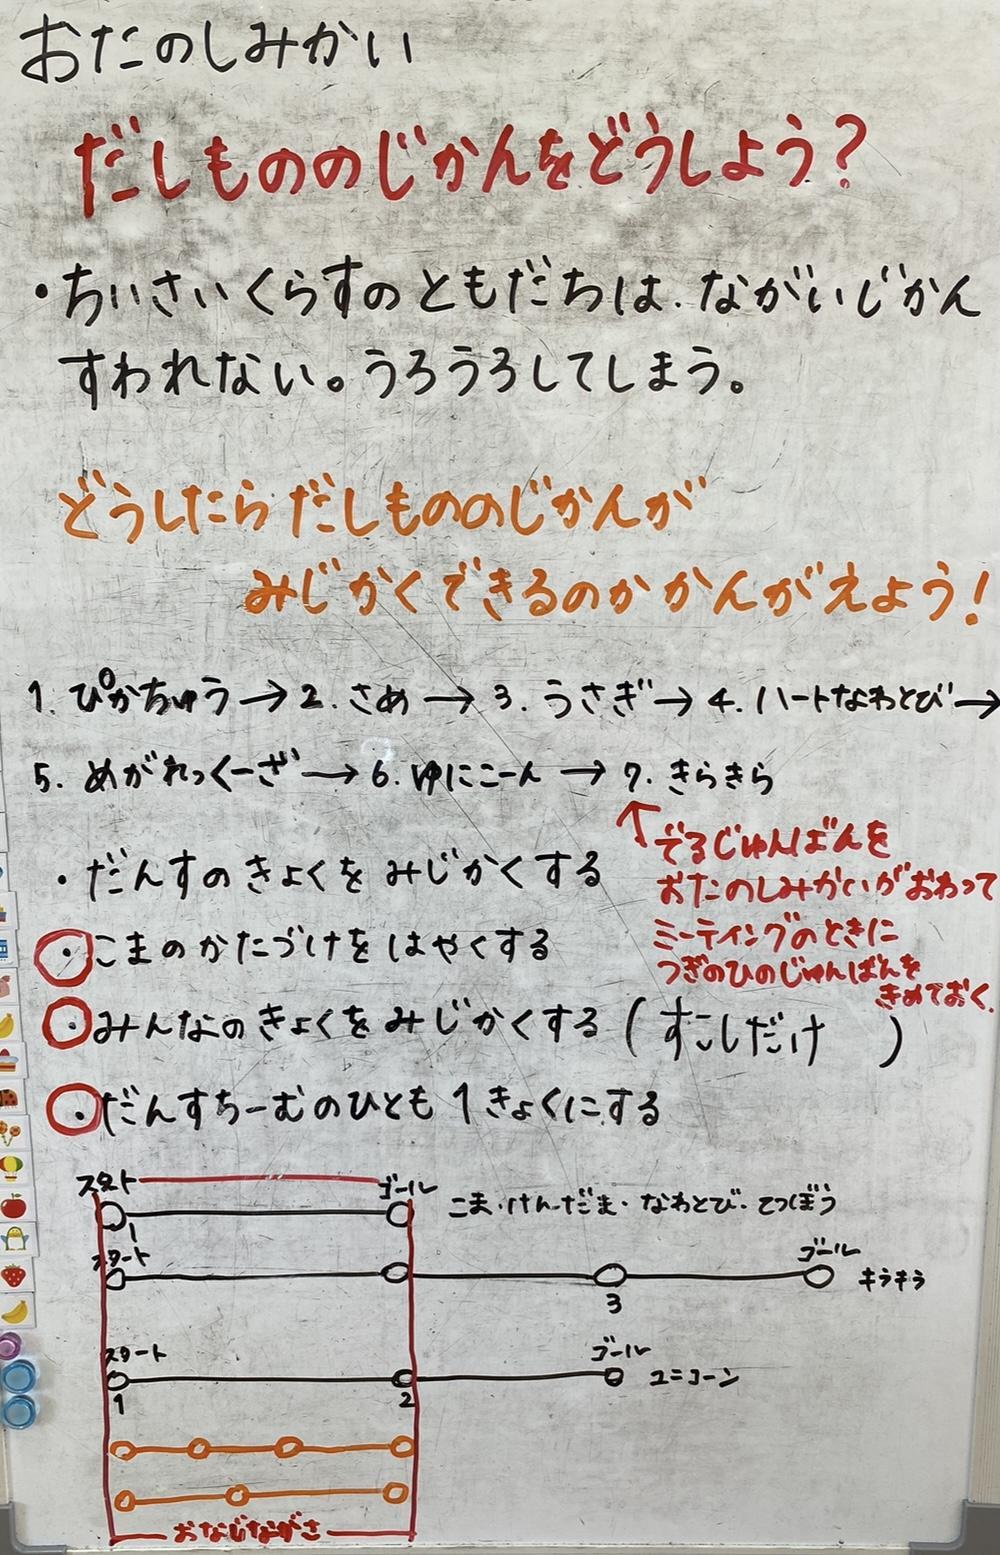 おたのしみかい
だしもののじかんをどうしよう?
・ちいさいくらすのともだちは、ながいじかん
すわれない。うろうろしてしまう。
どうしたらだしもののじかんが
みじかくできるのかかんがえよう!
1. ぴかちゅう→2. さめ→3. うさぎ→4. ハートなわとび→
5. めがれっくーざ→6. ゆにこーん→7. きらきら
↑でるじゅんばんを
おたのしみかいがおわって
ミーティングのときに
つぎのひのじゅんばんを
きめておく.
・だんすのきょくをみじかくする
・こまのかたづけをはやくする
・みんなのきょくをみじかくする(すこしだけ)
・だんすちーむのひとも1きょくにする
スタート ゴール こま・けんだま・なわとび・てつぼう
1
スタート ゴール キラキラ
3
スタート ゴール ユニコーン
1 2
おなじながさ